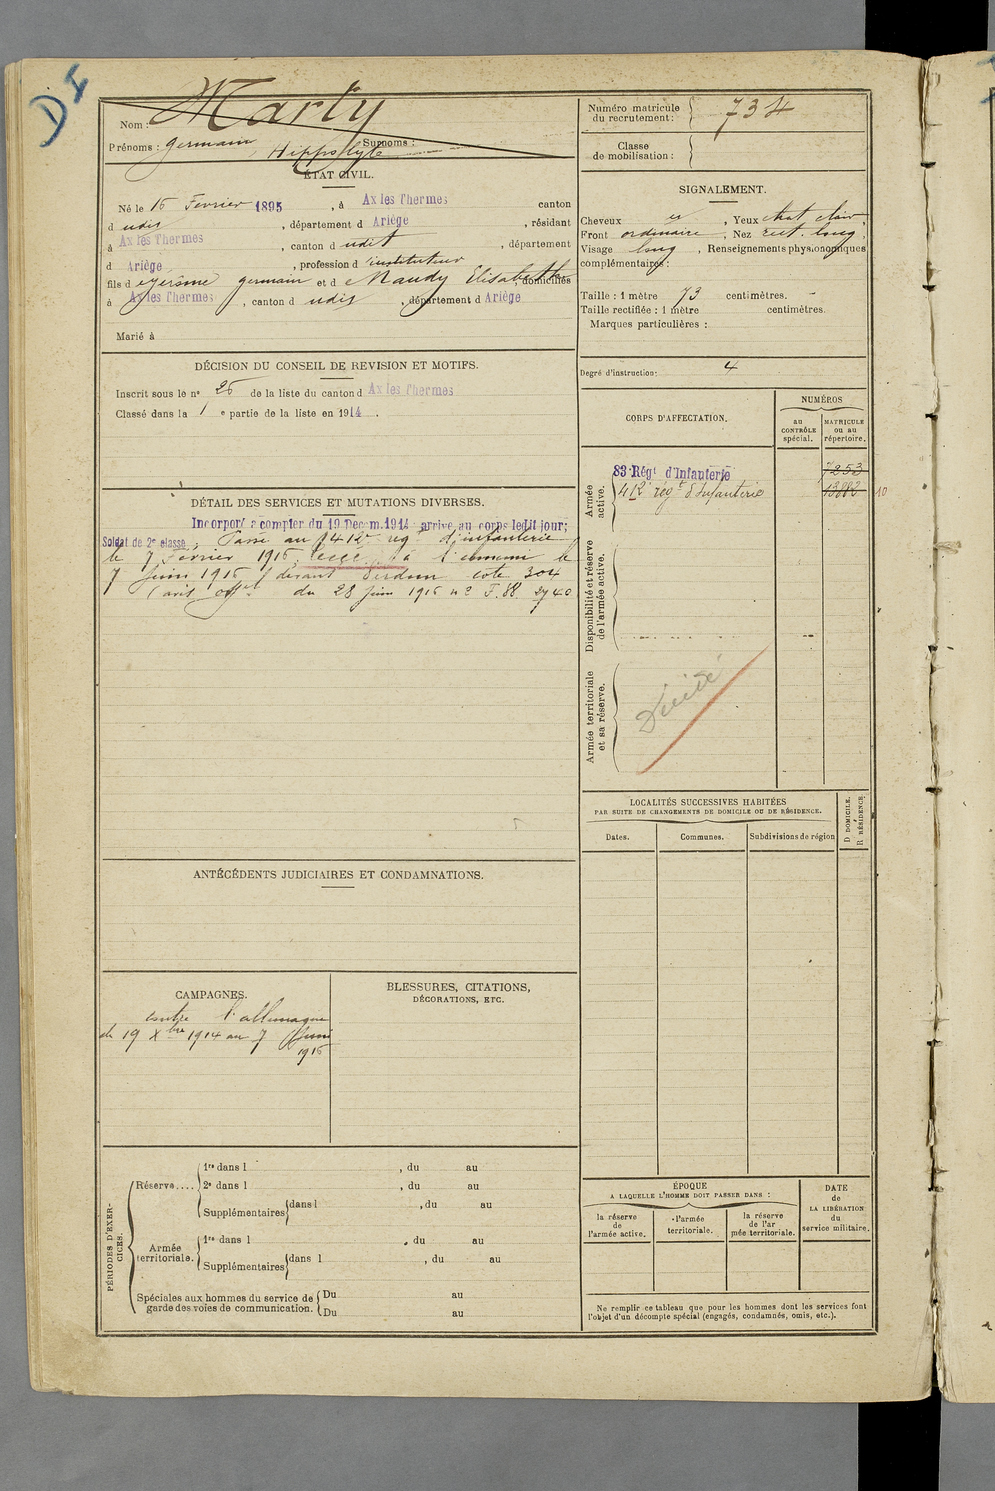 DI
Nom : Marty
Prénoms : germain, Hippolyte Surnoms :
Numéro matricule du recrutement : 734
Classe de mobilisation :
ÉTAT CIVIL.
Né le 16 Fevrier 1895, à Ax les Thermes canton
d udit, département d Ariège, résidant
à Ax les Thermes, canton d udit, département
d Ariège, profession d instituteur
fils d germain et d Naudy Elisabeth, domiciliés
à Ax les Thermes, canton d udit, département d Ariège
Marié à
SIGNALEMENT.
Cheveux, Yeux chat clair,
Front ordinaire, Nez rect. long,
Visage long, Renseignements physionomiques
complémentaires :
Taille : 1 mètre 73 centimètres.
Taille rectifiée : 1 mètre centimètres.
Marques particulières :
Degré d'instruction : 4
DÉCISION DU CONSEIL DE REVISION ET MOTIFS.
Inscrit sous le n° 26 de la liste du canton d Ax les Thermes
Classé dans la 1 e partie de la liste en 1914.
CORPS D'AFFECTATION.
NUMÉROS
au CONTRÔLE spécial.
MATRICULE ou au répertoire.
Armée active.
83 Régt d'Infanterie 7253
412 régt d'Infanterie 13882 10
Disponibilité et réserve de l'armée active.
Armée territoriale et sa réserve.
DÉTAIL DES SERVICES ET MUTATIONS DIVERSES.
Incorporé à compter du 19 Décem. 1914 arrivé au corps ledit jour;
Soldat de 2e classe. Passé au 412e regt d'infanterie
le 7 Février 1916, à l'ennemi le
7 juin 1916 devant Verdun cote 304
(avis offel du 28 juin 1916 n° F.88 2740
LOCALITÉS SUCCESSIVES HABITÉES
PAR SUITE DE CHANGEMENTS DE DOMICILE OU DE RÉSIDENCE.
Dates.
Communes.
Subdivisions de région
D DOMICILE.
R RÉSIDENCE.
ANTÉCÉDENTS JUDICIAIRES ET CONDAMNATIONS.
CAMPAGNES.
contre l'allemagne
du 19 Xbre 1914 au 7 Juin
1916
BLESSURES, CITATIONS,
DÉCORATIONS, ETC.
PÉRIODES D'EXERCICES.
Réserve....
1re dans l , du au
2e dans l , du au
Supplémentaires dans l , du au
Armée territoriale.
1re dans l , du au
Supplémentaires dans l , du au
Spéciales aux hommes du service de garde des voies de communication.
Du au
Du au
ÉPOQUE
A LAQUELLE L'HOMME DOIT PASSER DANS :
la réserve de l'armée active.
l'armée territoriale.
la réserve de l'armée territoriale.
DATE de LA LIBÉRATION du service militaire.
Ne remplir ce tableau que pour les hommes dont les services font
l'objet d'un décompte spécial (engagés, condamnés, omis, etc.).